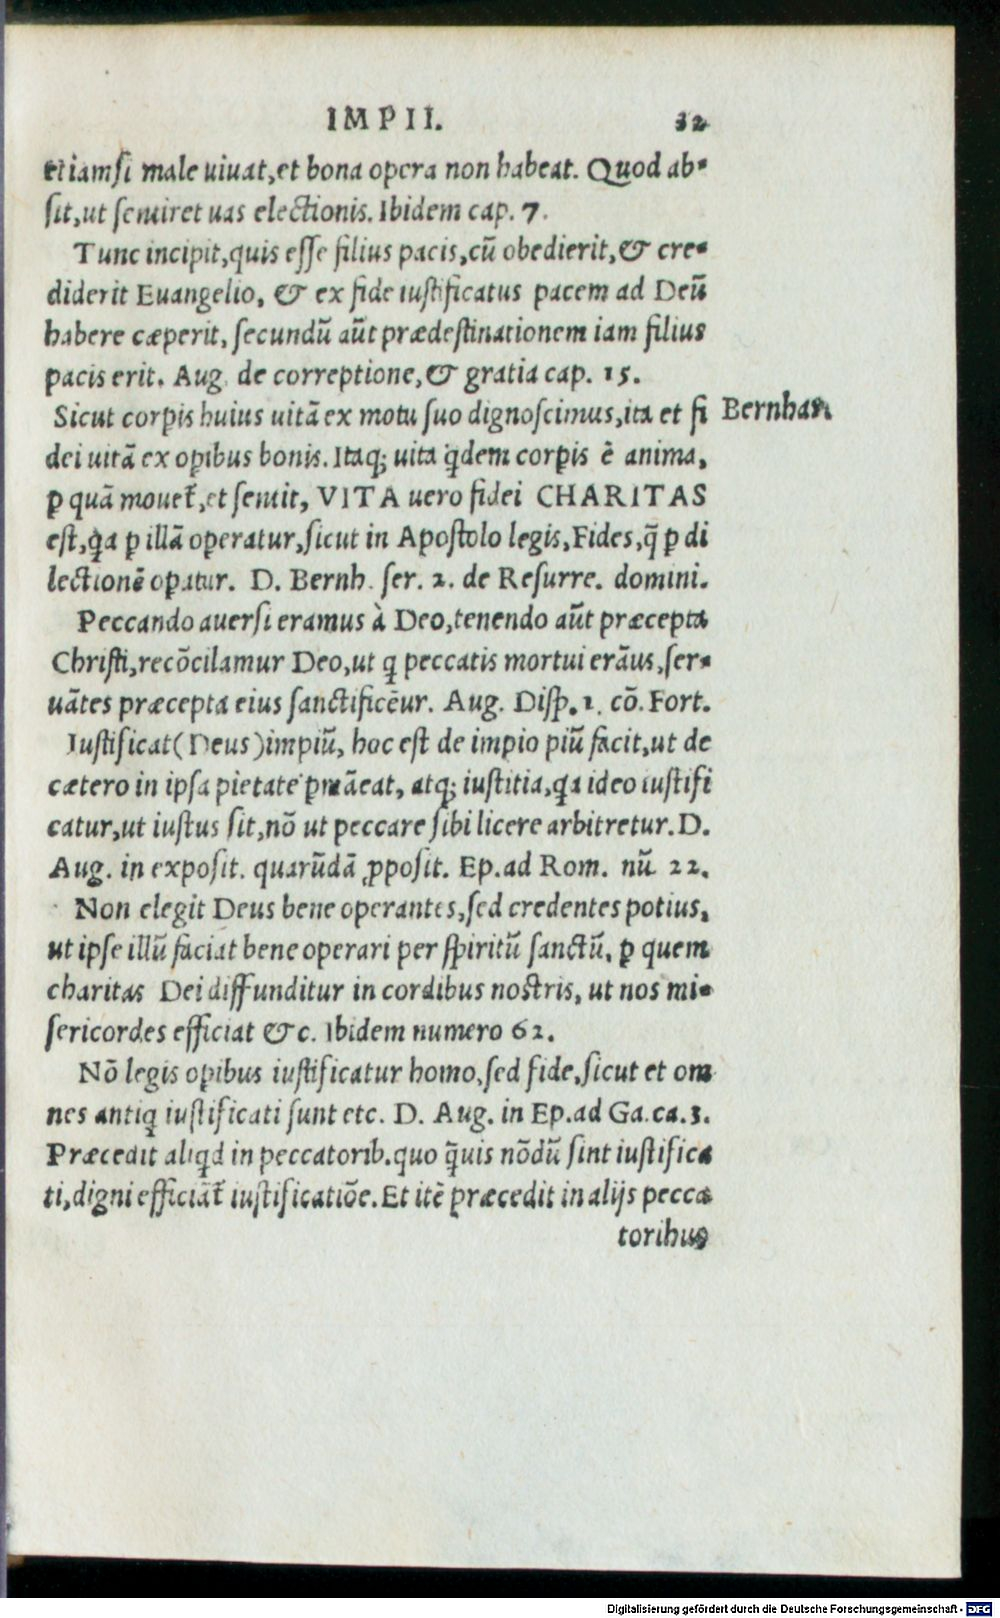 IMPII. 32
etiamsi male uiuat,et bona opera non habeat. Quod ab-
sit,ut sentiret uas electionis. Ibidem cap. 7.
Tunc incipit,quis esse filius pacis,cū obedierit,& cre-
diderit Euangelio, & ex fide iustificatus pacem ad Deū
habere cæperit, secundū aūt prædestinationem iam filius
pacis erit. Aug. de correptione,& gratia cap. 15.
Sicut corꝑis huius uitā ex motu suo dignoscimus,ita et fi
Bernhar.
dei uitā ex oꝑibus bonis. Itaq; uita q̇dem corꝑis ē anima,
ꝑ quā mouet᷑,et sentit, VITA uero fidei CHARITAS
est,q̇a ꝑ illā operatur,sicut in Apostolo legis,Fides,q̄ ꝑ di
lectionē oꝑatur. D. Bernh. ser. 2. de Resurre. domini.
Peccando auersi eramus à Deo,tenendo aūt præcepta
Christi,recōcilamur Deo,ut ꝗ peccatis mortui erāus,ser-
uātes præcepta eius sanctificēur. Aug. Disp. 1. cō. Fort.
Iustificat(Deus)impiū, hoc est de impio piū facit,ut de
cætero in ipsa pietate ꝑmāeat, atq; iustitia,ꝗa ideo iustifi
catur,ut iustus sit,nō ut peccare sibi licere arbitretur. D.
Aug. in exposit. quarūdā ꝓposit. Ep. ad Rom. nū 22.
Non elegit Deus bene operantes,sed credentes potius,
ut ipse illū faciat bene operari per spiritū sanctū, ꝑ quem
charitas Dei diffunditur in cordibus nostris, ut nos mi-
sericordes efficiat &c. Ibidem numero 62.
Nō legis oꝑibus iustificatur homo,sed fide,sicut et om
nes antiꝗ iustificati sunt etc. D. Aug. in Ep. ad Ga. ca. 3.
Præcedit aliꝗd in peccatorib. quo q̄uis nōdū sint iustifica
ti,digni efficiāt᷑ iustificatiōe. Et itē præcedit in alijs pecca
toribus
Digitalisierung gefördert durch die Deutsche Forschungsgemeinschaft - DFG